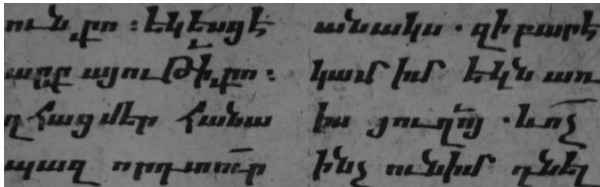 ուն քո ։ եկեսցէ
արքայութի քո ։
զհաց մեր հանա
պազ որդ տուր
անակս · զի բարե
կամ իմ եկն առ
իս յուղոյ · և ոչ
ինչ ունիմ դնել